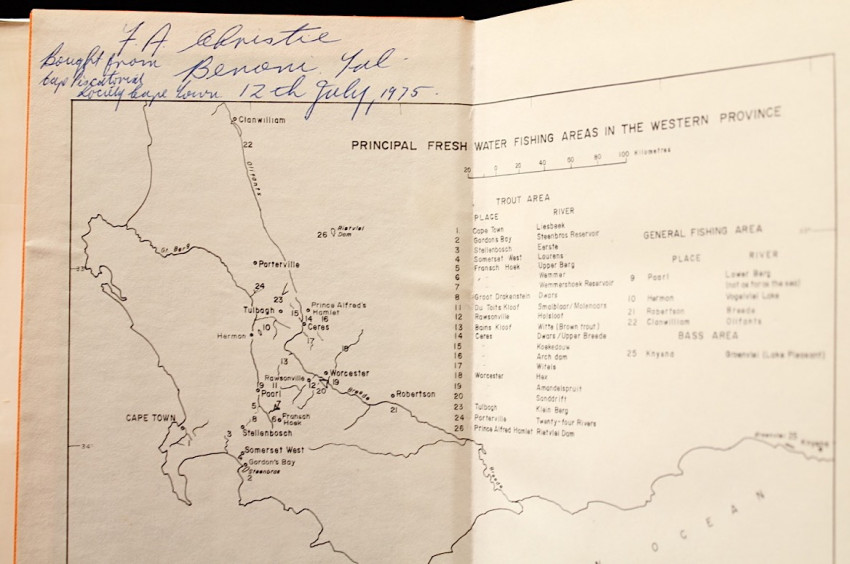 F. A. Christie
Bought from Benoni. Tul.
Cape Piscatorial
Society Cape Town 12th July, 1975.
PRINCIPAL FRESH WATER FISHING AREAS IN THE WESTERN PROVINCE
20 0 20 40 60 80 100 Kilometres
TROUT AREA
PLACE RIVER
1 Cape Town Liesbeek
2 Gordons Bay Steenbras Reservoir
3 Stellenbosch Eerste
4 Somerset West Lourens
5 Fransch Hoek Upper Berg
6 Wemmer
7 Wemmershoek Reservoir
8 Groot Drakenstein Dwars
11 Du Toits Kloof Smalblaar/Molenaars
12 Rawsonville Holsloot
13 Bains Kloof Witte (Brown trout)
14 Ceres Dwars/Upper Breede
15 Koekedouw
16 Arch dam
17 Witels
18 Worcester Hex
19 Amandelspruit
20 Sanddrift
23 Tulbagh Klein Berg
24 Porterville Twenty-four Rivers
26 Prince Alfred Hamlet Rietvlei Dam
GENERAL FISHING AREA
PLACE RIVER
9 Paarl Lower Berg
(not as far as the sea)
10 Hermon Vogelvlei Lake
21 Robertson Breede
22 Clanwilliam Olifants
BASS AREA
25 Knysna Groenvlei (Lake Pleasant)
Clanwilliam
22
Olifants
26 Rietvlei
Dam
Gt. Berg
33
Porterville
24
23
Tulbagh
Prince Alfred's
Hamlet
15
14 16
Ceres
10
Hermon
17
18
13
Worcester
Rawsonville
9 11 12 19
20
Paarl
Breede
Robertson
21
5 7
8 6 Fransch
Hoek
CAPE TOWN
3 Stellenbosch
34
Somerset West
Gordon's Bay
Steenbras
2
Breede
Groenvlei 25 Knysna
N OCEAN